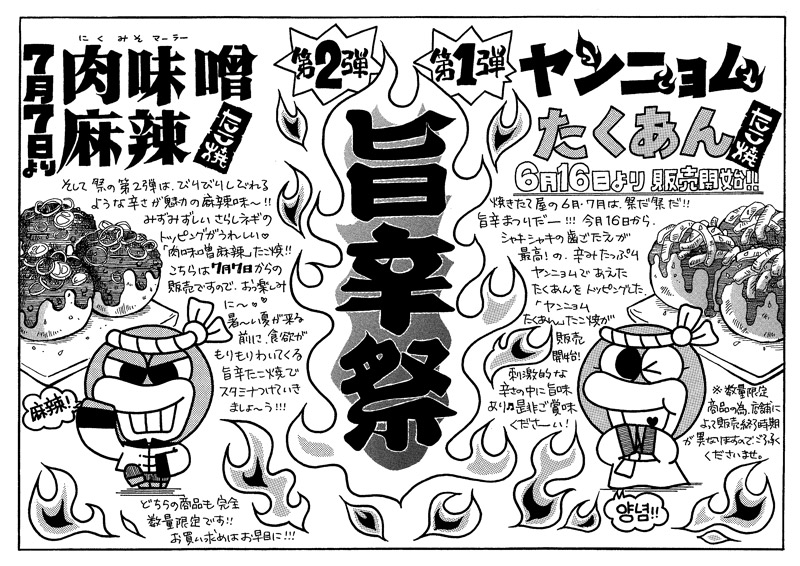 第1弾
ヤンニョム
たくあん
たこ焼
6月16日より 販売開始!!
焼きたて屋の6月・7月は、祭だ祭だ!!
旨辛まつりだー!!! 今月16日から、
シャキシャキの歯ごたえが
最高!の、辛みたっぷり
ヤンニョムであえた
たくあんをトッピングした
「ヤンニョム
たくあん」たこ焼が
販売
開始!
刺激的な
辛さの中に旨味
あり♬是非ご賞味
くださーい!
※数量限定
商品の為、店舗に
よって販売終了時期
が異なりますのでご了承
くださいませ。
양념!!
旨辛祭
第2弾
にくみそマーラー
肉味噌
麻辣
たこ焼
7月7日より
そして祭の第2弾は、びりびりしびれる
ような辛さが魅力の麻辣味〜!!
みずみずしいさらしネギの
トッピングがうれしい♡
「肉味噌麻辣」たこ焼!!
こちらは7月7日からの
販売ですので、お楽しみ
に〜♡♡
暑〜い夏が来る
前に、食欲が
もりもりわいてくる
旨辛たこ焼で
スタミナつけていき
ましょ〜う!!!
麻辣!
どちらの商品も完全
数量限定です!!
お買い求めはお早目に!!!